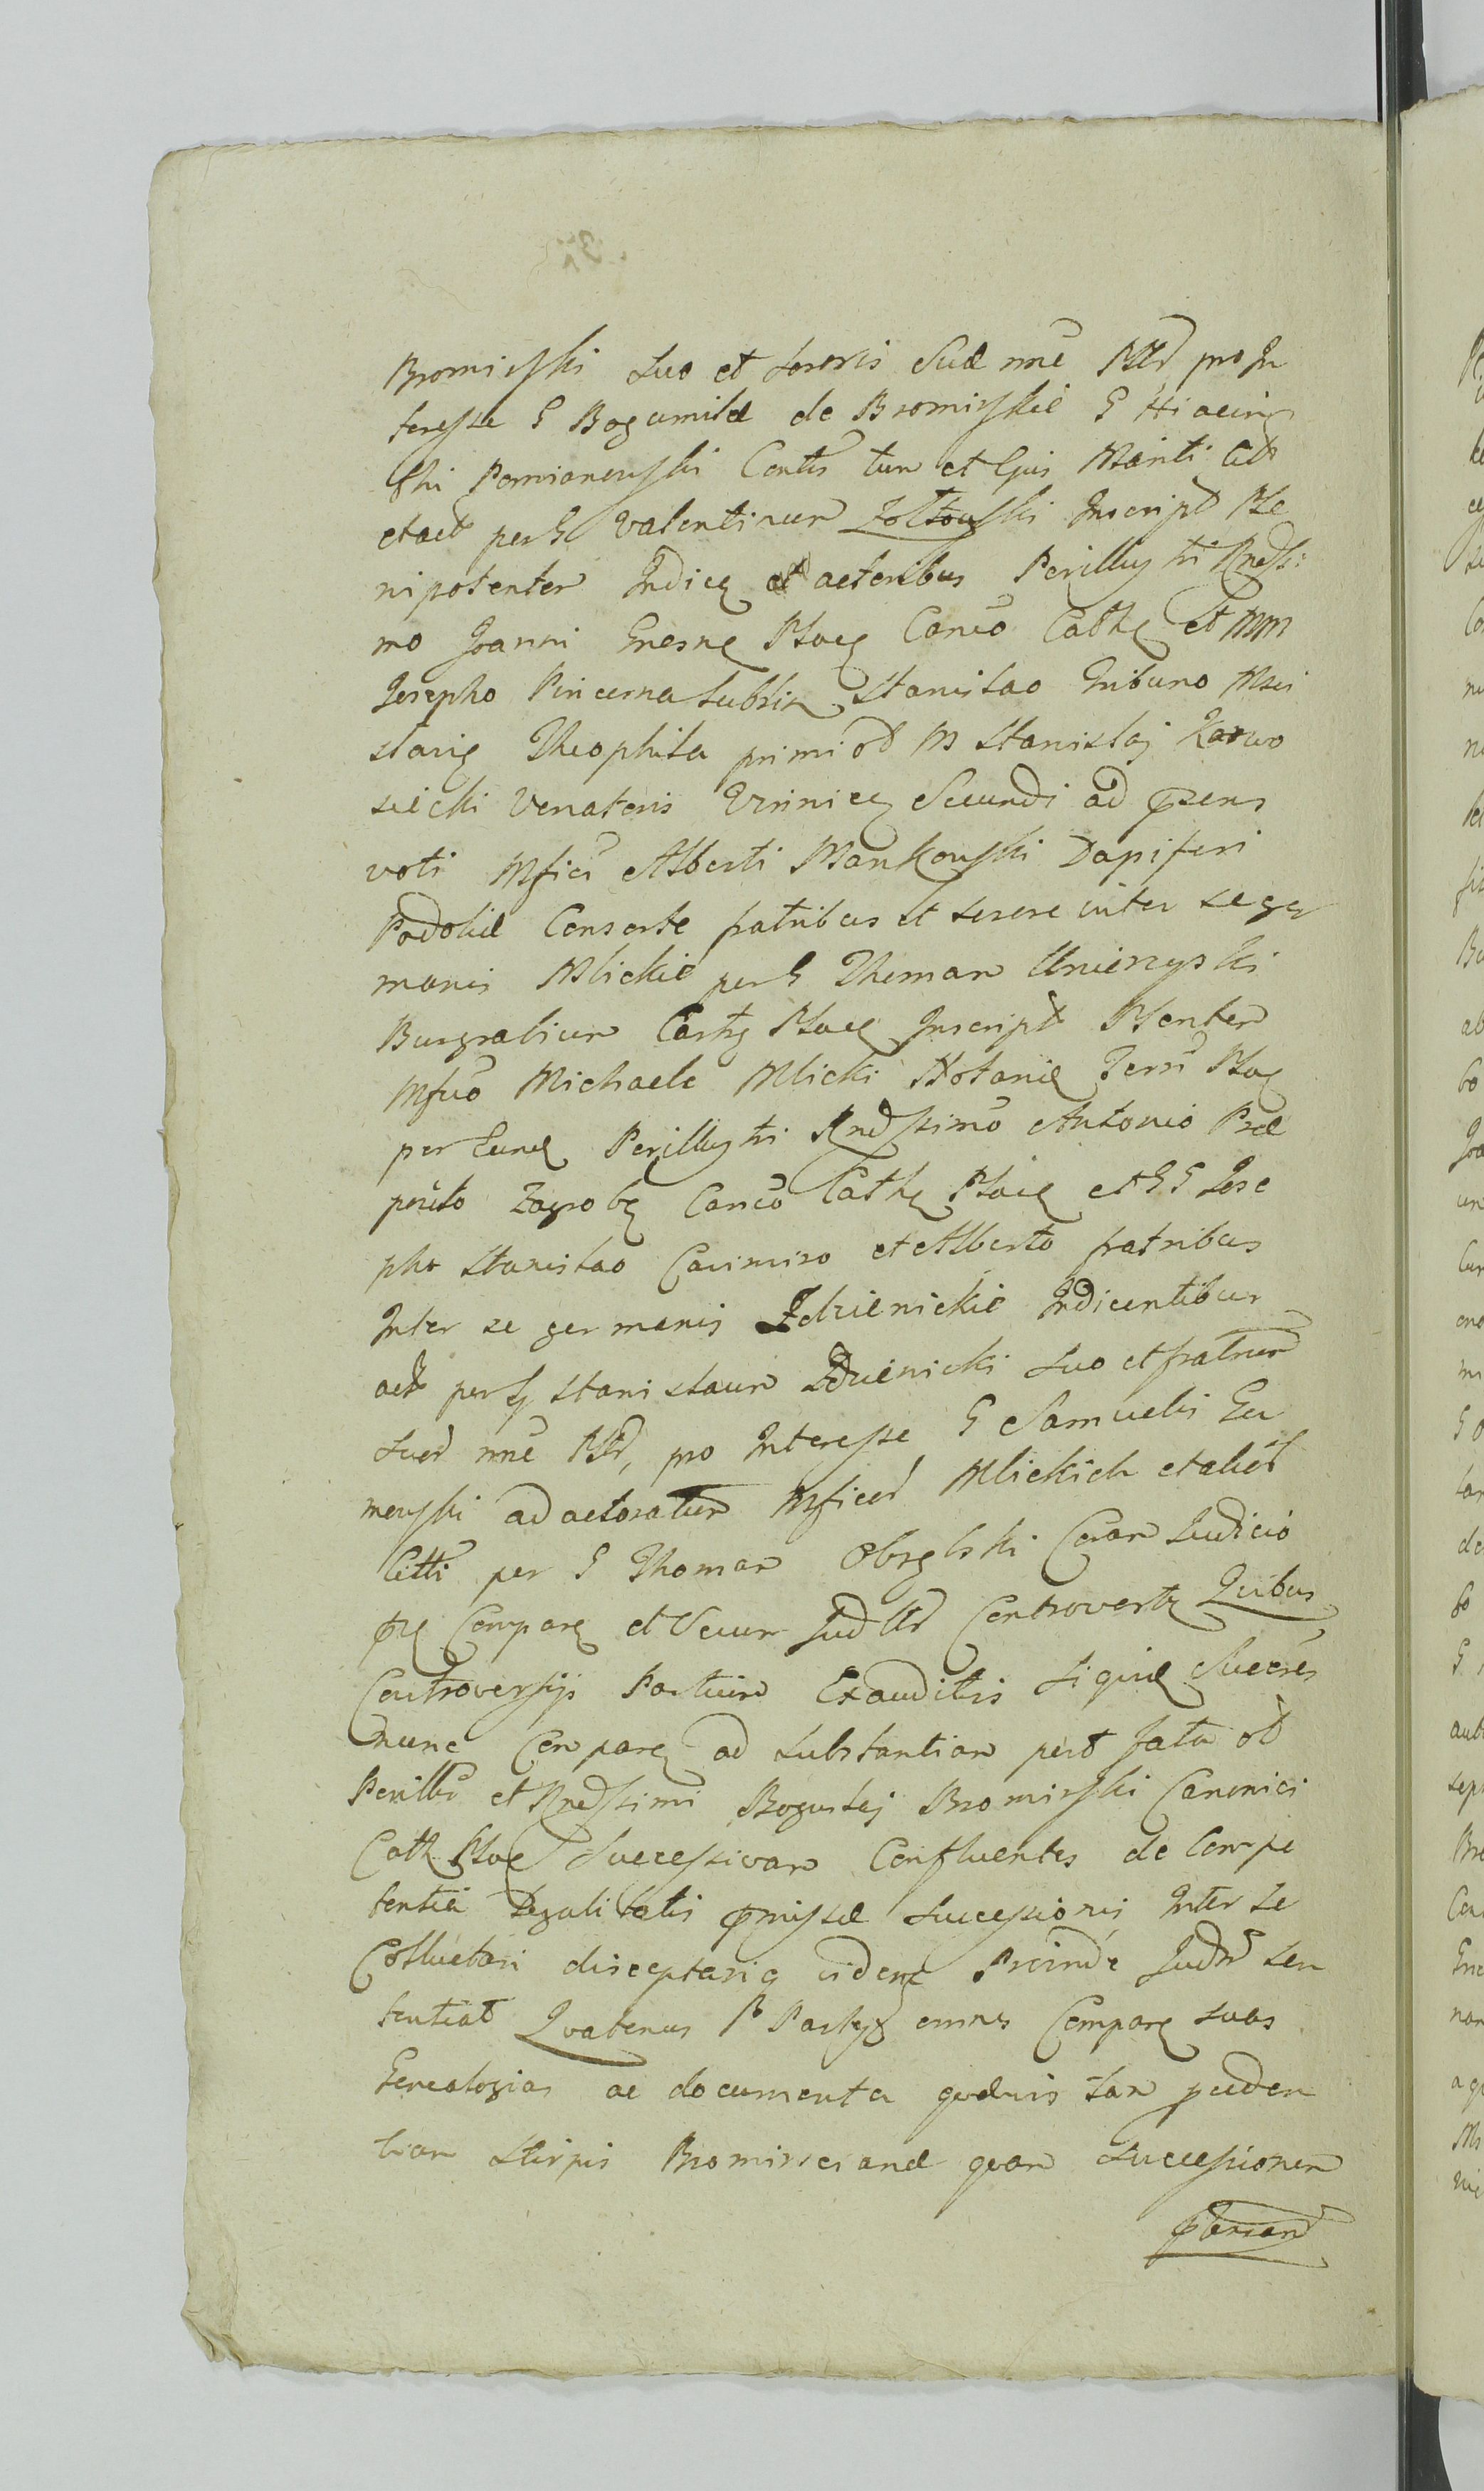 Bromirski suo et sororis suæ nne Pltr pro In
teresse G Bogumilæ de Bromirskie G Hiacin
thi Pomianowski Conts tum et Ejus Mariti Citt
et act per G Valentinum Zołtowski Inscript Ple
nipotenter Indicq et actoribus Perillustri Rndssi:
mo Joanni Gnesnę Płocę Canco Cathę et MM
Josepho Pincerna Sublin Stanislao Tribuno Msci
slavię Theophila primi ot M Stanislaj Karwo
siecki Venatoris Winnicę Secundi ad præns
voti Mfici Alberti Mankowski Dapiferi
Podoliæ Consorte fratribus et sorore inter se ger
manis Mlickie per G Thomam Unierzyski
Burgrabium Castrę Płocę Inscript Plenter
Mfico Michaele Mlicki Notarię Terrī Płoc
per Eundę Perillustri Rndssimo Antonio Præ
posito Zagrobę Canco Cathę Płocę et GG Jose
pho Stanislao Casimiro et Alberto fratribus
Inter se germanis Zdzienickie Indicentibus
act per G Stanislaum Zdzienicki suo et fratrum
suor nne Pltr, pro Interesse G Samuelis Gu
mowski ad actoratum Mficor Mlickich et alior
Citti per G Thomam Obrębski Coram Judicio
præ Comparę et Secum Judltr Controvertę Quibus
Controversijs Partium Exauditis siquid Succres
nunc Comparę ad substantiam post fata ol
Perillris et Rndssimi Bogusłaj Bromirski Canonici
Cath Płocę Successivam Confluentes de Compe
tentia Legalitatis præmissæ successionis Inter se
Colluctari disceptariq videntę Proinde Judm sen
tentiat Quatenus P Partes omnes Comparę suas
Genealogias ac documenta quævis tam
stirpis Bromirscianæ quam successionem